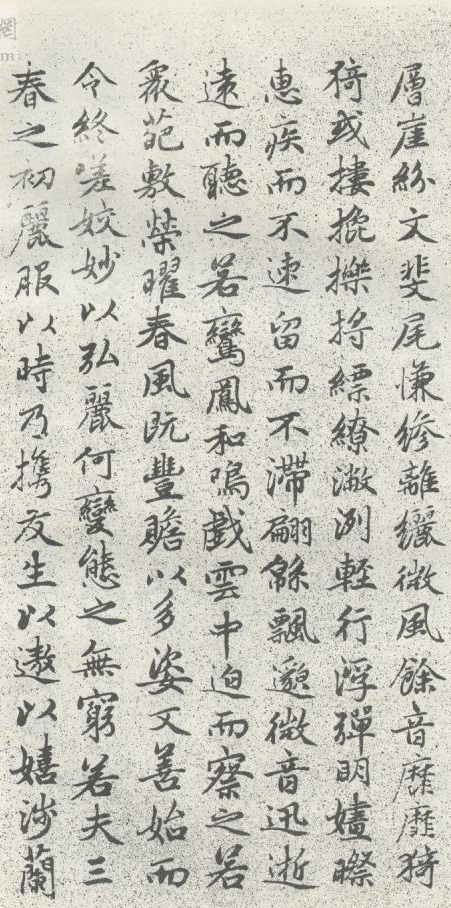 層崖紛文斐尾慊縿離纚微風餘音靡靡猗
猗或摟擽捋縹繚潎洌輕行浮彈明嫿暩
惠疾而不速留而不滯翩緜飄邈微音迅逝
遠而聽之若鸞鳳和鳴戲雲中迫而察之若
衆葩敷榮曜春風既豐贍以多姿又善始而
令終嗟姣妙以弘麗何變態之無窮若夫三
春之初麗服以時乃攜友生以遨以嬉涉蘭